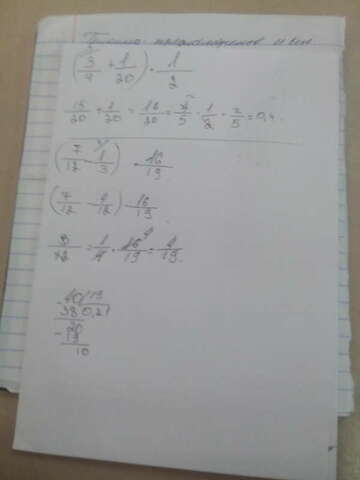 5
(3/4 + 1/20) · 1/2
15/20 + 1/20 = 16/20 = 4/5 · 1/2 = 2/5 = 0,4
(7/12 - 1/3) · 16/19
(7/12 - 4/12) · 16/19
3/12 = 1/4 · 16/19 = 4/19
40 | 19
38 0,21
20
- 19
10